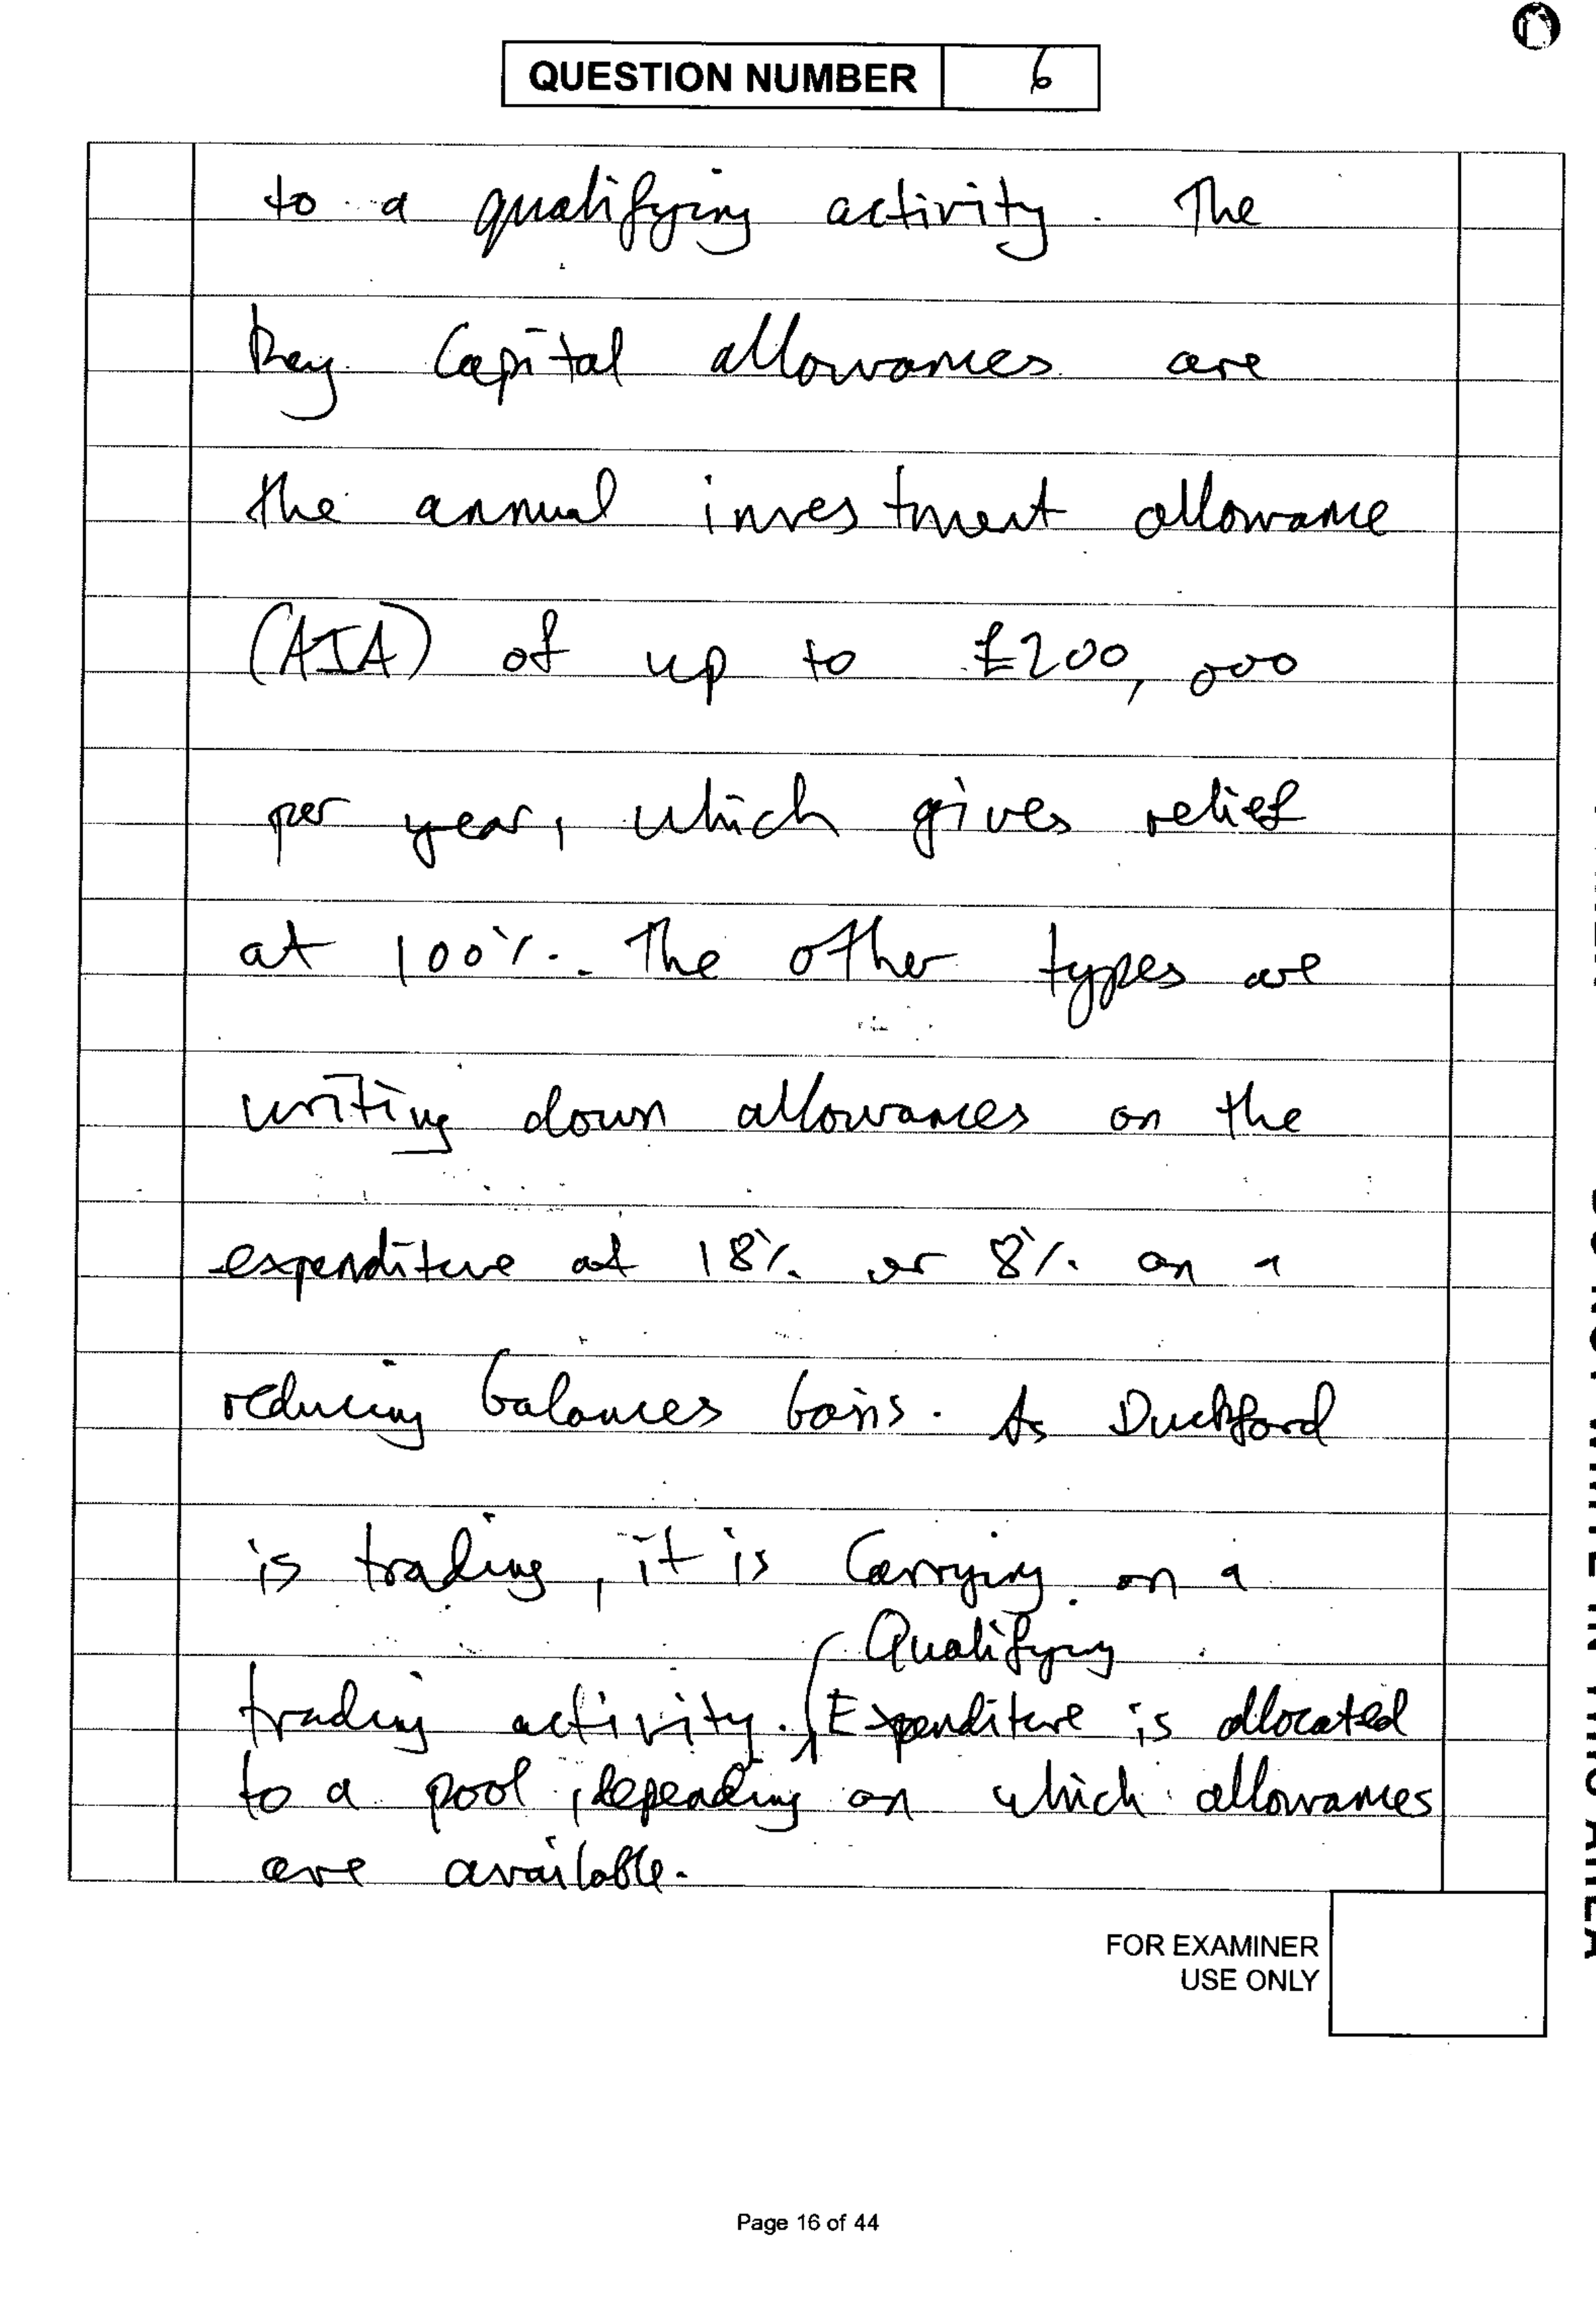 QUESTION NUMBER 6
to a qualifying activity. The
key Capital allowances are
the annual investment allowance
(AIA) of up to £200,000
per year, which gives relief
at 100%. The other types are
writing down allowances on the
expenditure at 18% or 8% on a
reducing balances basis. As Duckford
is trading, it is Carrying on a
Qualifying
trading activity. Expenditure is allocated
to a pool, depending on which allowances
are available.
FOR EXAMINER
USE ONLY
Page 16 of 44